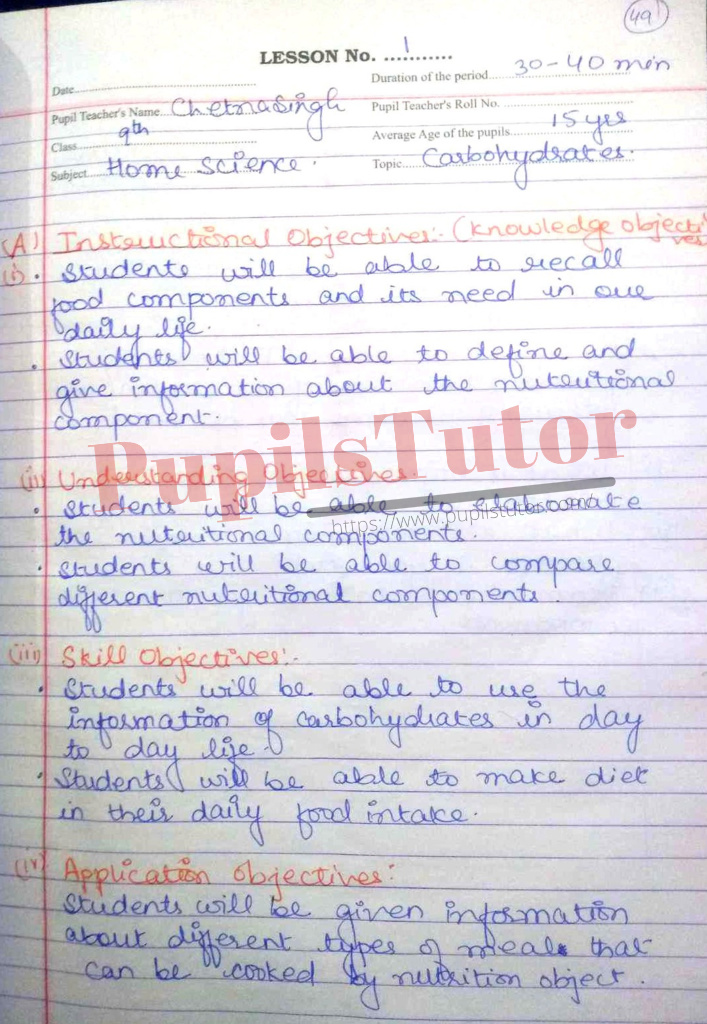 49
LESSON No. 1
Duration of the period 30-40 min
Date
Pupil Teacher's Name Chetnasingh
Pupil Teacher's Roll No.
Class 9th
Average Age of the pupils 15 yrs
Subject Home Science.
Topic Carbohydrates.
(A) Instructional Objectives:- (Knowledge objectives)
(i) • Students will be able to recall
food components and its need in our
daily life.
• Students will be able to define and
give information about the nutritional
component.
PupilsTutor
(ii) Understanding Objectives.
• Students will be able to elaborate
https://www.pupilstutor.com
the nutritional components.
• Students will be able to compare
different nutritional components.
(iii) Skill Objectives:-
• Students will be able to use the
information of carbohydrates in day
to day life.
• Students will be able to make diet
in their daily food intake.
(iv) Application Objectives:
Students will be given information
about different types of meals that
can be cooked by nutrition object.